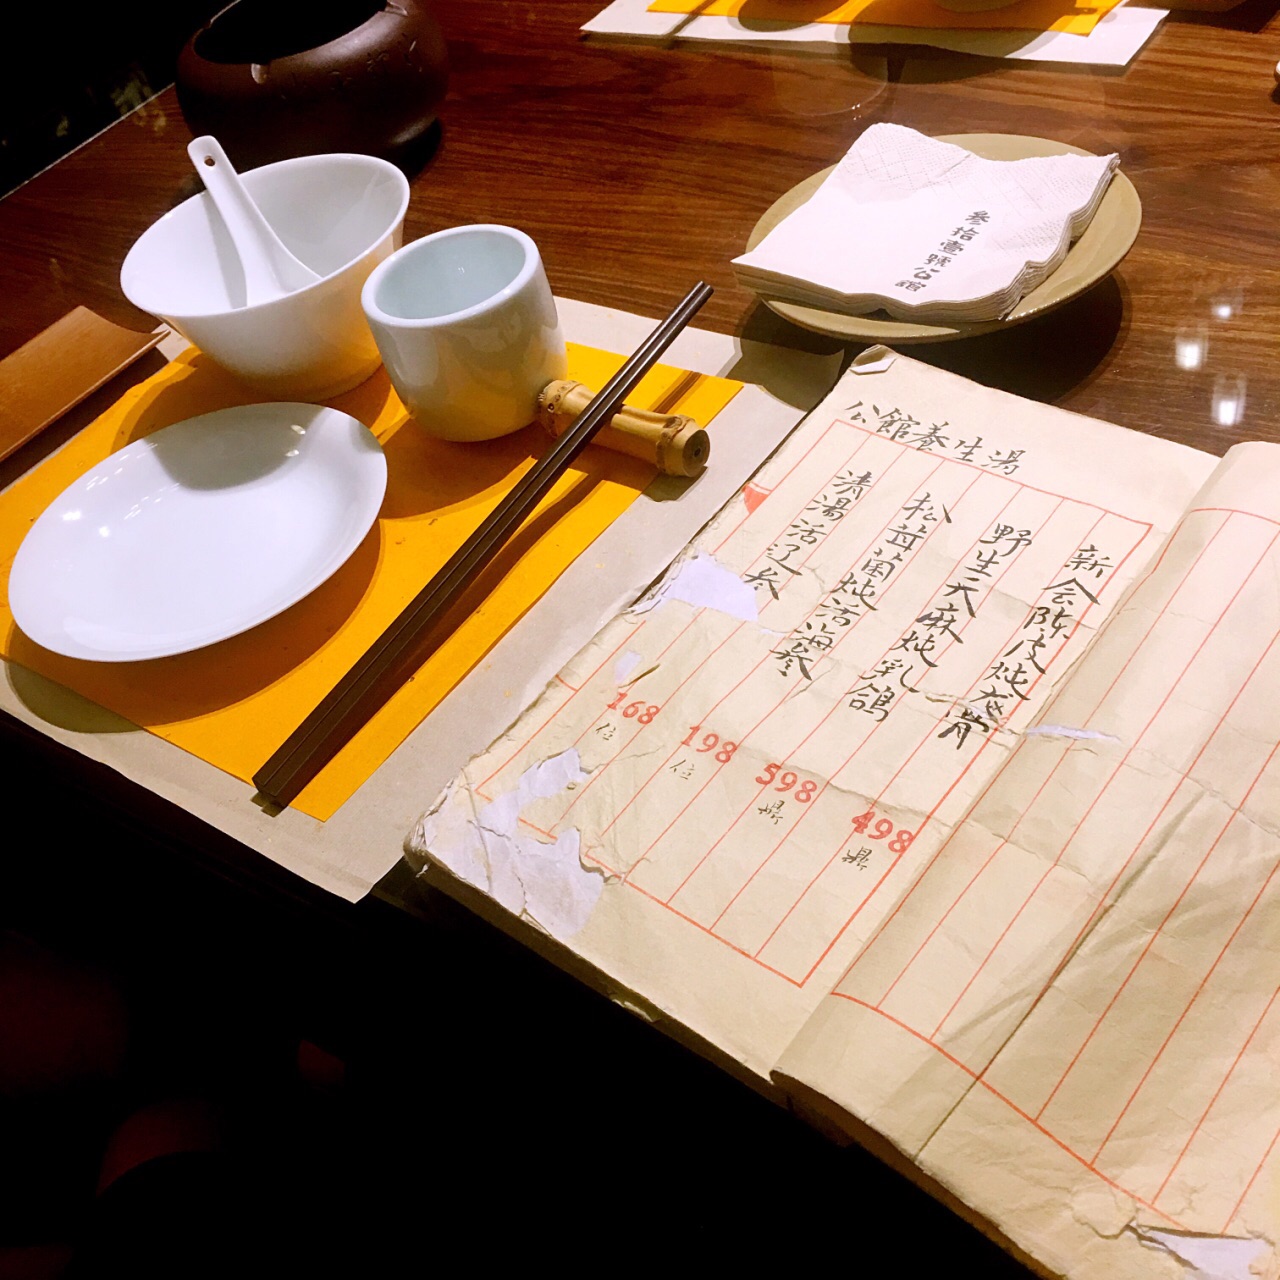 叁拾壹號公館
公館養生湯
新会陈皮炖龙骨
498
鼎
野生天麻炖乳鸽
598
鼎
松茸菌炖活海参
198
位
清湯活辽参
168
位